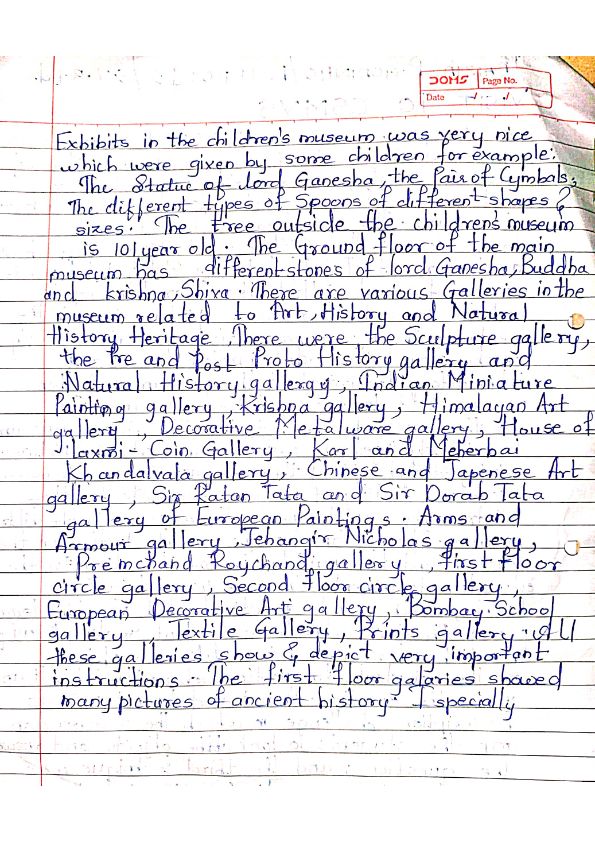 DOMS Page No.
Date / /
Exhibits in the children's museum was very nice
which were given by some children for example:
The Statue of lord Ganesha, the Pair of Cymbals,
The different types of Spoons of different shapes &
sizes. The tree outside the children's museum
is 101 year old. The Ground floor of the main
museum has different stones of lord Ganesha, Buddha
and krishna, Shiva. There are various Galleries in the
museum related to Art, History and Natural
History Heritage, There were the Sculpture gallery,
the Pre and Post Proto History gallery and
Natural History gallergy, Indian Miniature
Painting gallery, Krishna gallery, Himalayan Art
gallery, Decorative Metalware gallery, House of
laxmi - Coin Gallery, Karl and Meherbai
Khandalvala gallery, Chinese and Japenese Art
gallery, Sir Ratan Tata and Sir Dorab Tata
gallery of European Paintings. Arms and
Armour gallery, Jehangir Nicholas gallery,
Premchand Roychand gallery, first floor
circle gallery, Second floor circle gallery,
European Decorative Art gallery, Bombay School
gallery, Textile Gallery, Prints gallery. All
these galleries show & depict very important
instructions. The first floor galaries showed
many pictures of ancient history. I specially